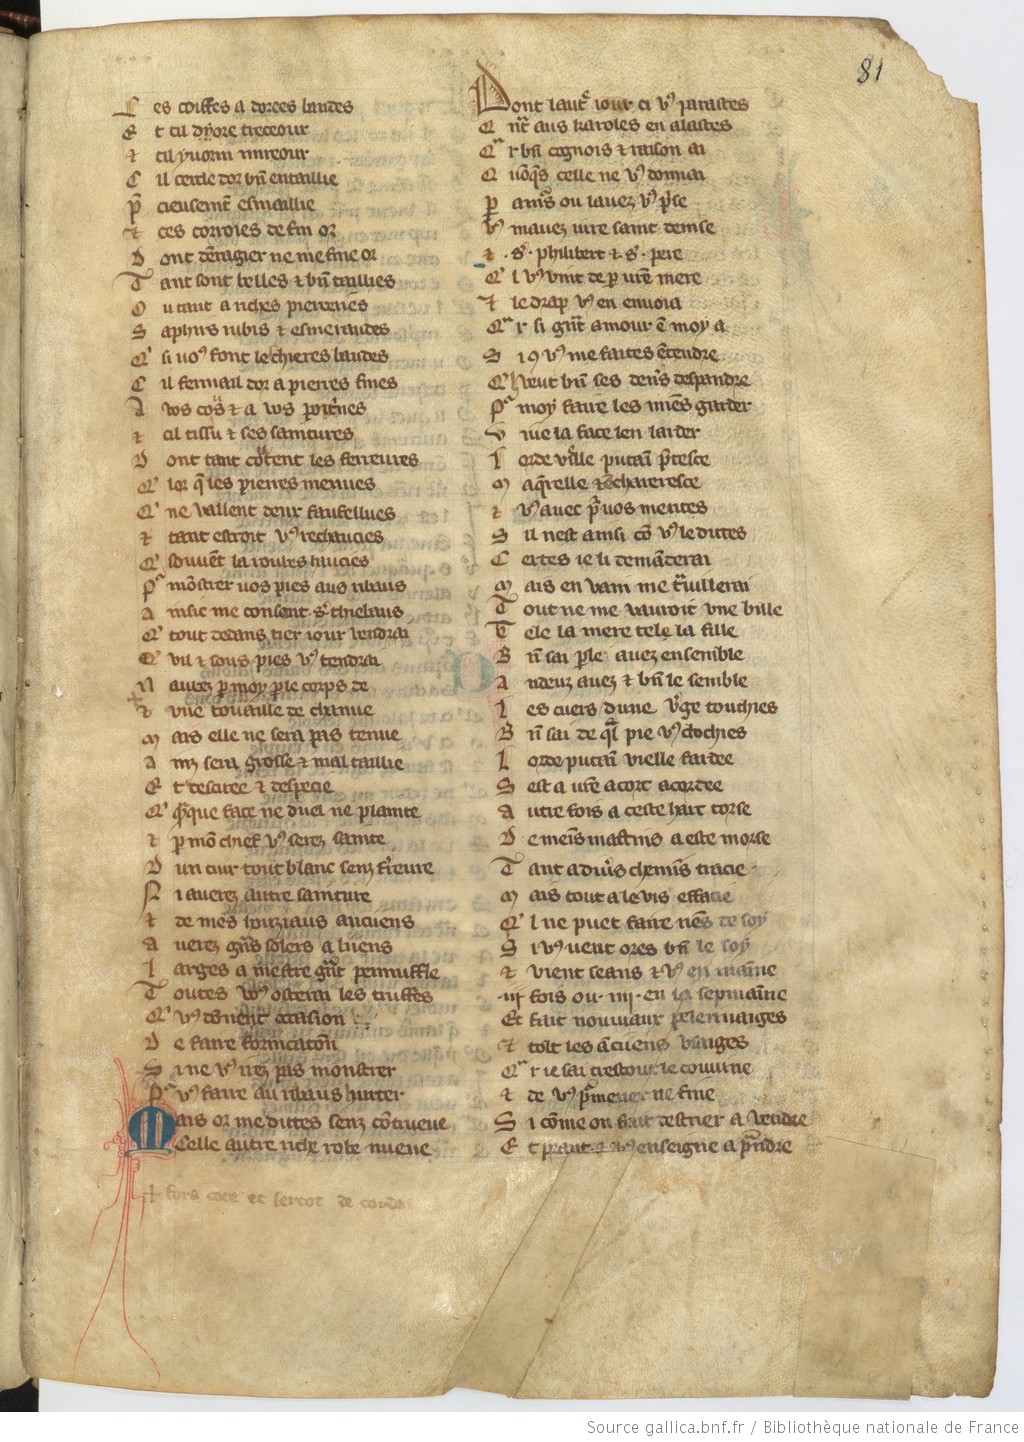 81
Les coiffes a dorees bandes
Et cil dyore treceour
et cil yuorin mireour
Cil cercle dor bn̄ entaillie
p̄cieusemēt esmaillie
et ces corroies de fin or
Dont dēragier ne me fine or
Tant sont belles et bn̄ taillies
Ou tant a riches pierreries
Saphirs rubis et esmeraudes
si uoꝰ font le chieres baudes
Cil fermail dor a pierres fines
A uos cos et a uos poitrines
et cil tissu et ses saintures
Dont tant coustent les ferreures
lor q̄ les pierres menues
ne vallent deux faufellues
et tant estroit vꝰ rechaucies
souuēt la robes haucies
mōstrer uos pies aus ribaus
Ainsic me consent sᵗ thiebaus
tout dedans tier iour vendrai
vil et sous pies vꝰ tendrai
N aurez p̱ moy p̱ le corps de
et vne touaille de chanue
Mais elle ne sera pas tenue
Ainz sera grosse et mal taillie
Et desciree et despecie
que face ne duel ne plainte
et p̱ mō chief vꝰ serez sainte
Dun cuir tout blanc senz ferreure
Ni auerez autre sainture
et de mes houziaus anciens
Auerez grās solers a liiens
Larges a mestre grāt pennuffle
Toutes vꝰ osterai les truffes
vꝰ donent occasion
De faire fornicatōn
Si ne vꝰ irez pas monstrer
vꝰ faire au ribaus hurter
Mais or me dittes senz cōtrueue
Celle autre riche robe nueue
+ fors cote et sercot de corde
Dont lautrͤ iour ci vꝰ parastes
nt̄ aus karoles en alastes
r bn̄ cognois et raison ai
celle ne vꝰ donnai
p̱ amꝰs ou lauez vꝰ p̄se
vꝰ mauez iure saint denise
et .sᵗ. philibert et sᵗ. pere
l vꝰ vint de p̱ vr̄e mere
le drap vꝰ en enuoia
r si grāt amour ē moy a
Si 9 vꝰ me faites ētendre
veut bn̄ ses den̄s despandre
moy faire les miēs garder
viue la face len larder
Lorde vielle putain p̄tesce
Maq̄relle et chareresce
et vꝰ auec p̄ uos merites
Sil nest ainsi cō vꝰ le dittes
Certes ie li demāderai
Mais en vain me tᵃuillerai
Tout ne me vauroit vne bille
Tele la mere tele la fille
Bn̄ sai p̱le auez ensemble
Andeux auez et bn̄ le semble
Les cuers dune vͤge touchies
Bn̄ sai de q̄l pie vꝰ clochies
Lorde putāi vielle fardee
Sest a vr̄e acort acordee
Autre fois a ceste hart torse
De meīs mastins a este morse
Tant a diu̾s chemīs tracie
Mais tout a le vis effacie
l ne puet faire nēs de soy
Si vꝰ vent ores bn̄ le soy
et vient seans et vꝰ en maīne
.iij. fois ou .iiij. en la sepmaīne
Et fait nouuiaux pelerinaiges
et tolt les āciens vsaiges
r ie sai trestout le couuine
et de vꝰ p̄mener ne fine
Si cōme on fait destrier a vendre
Et prant et vꝰ enseigne a prandre
Source gallica.bnf.fr / Bibliothèque nationale de France